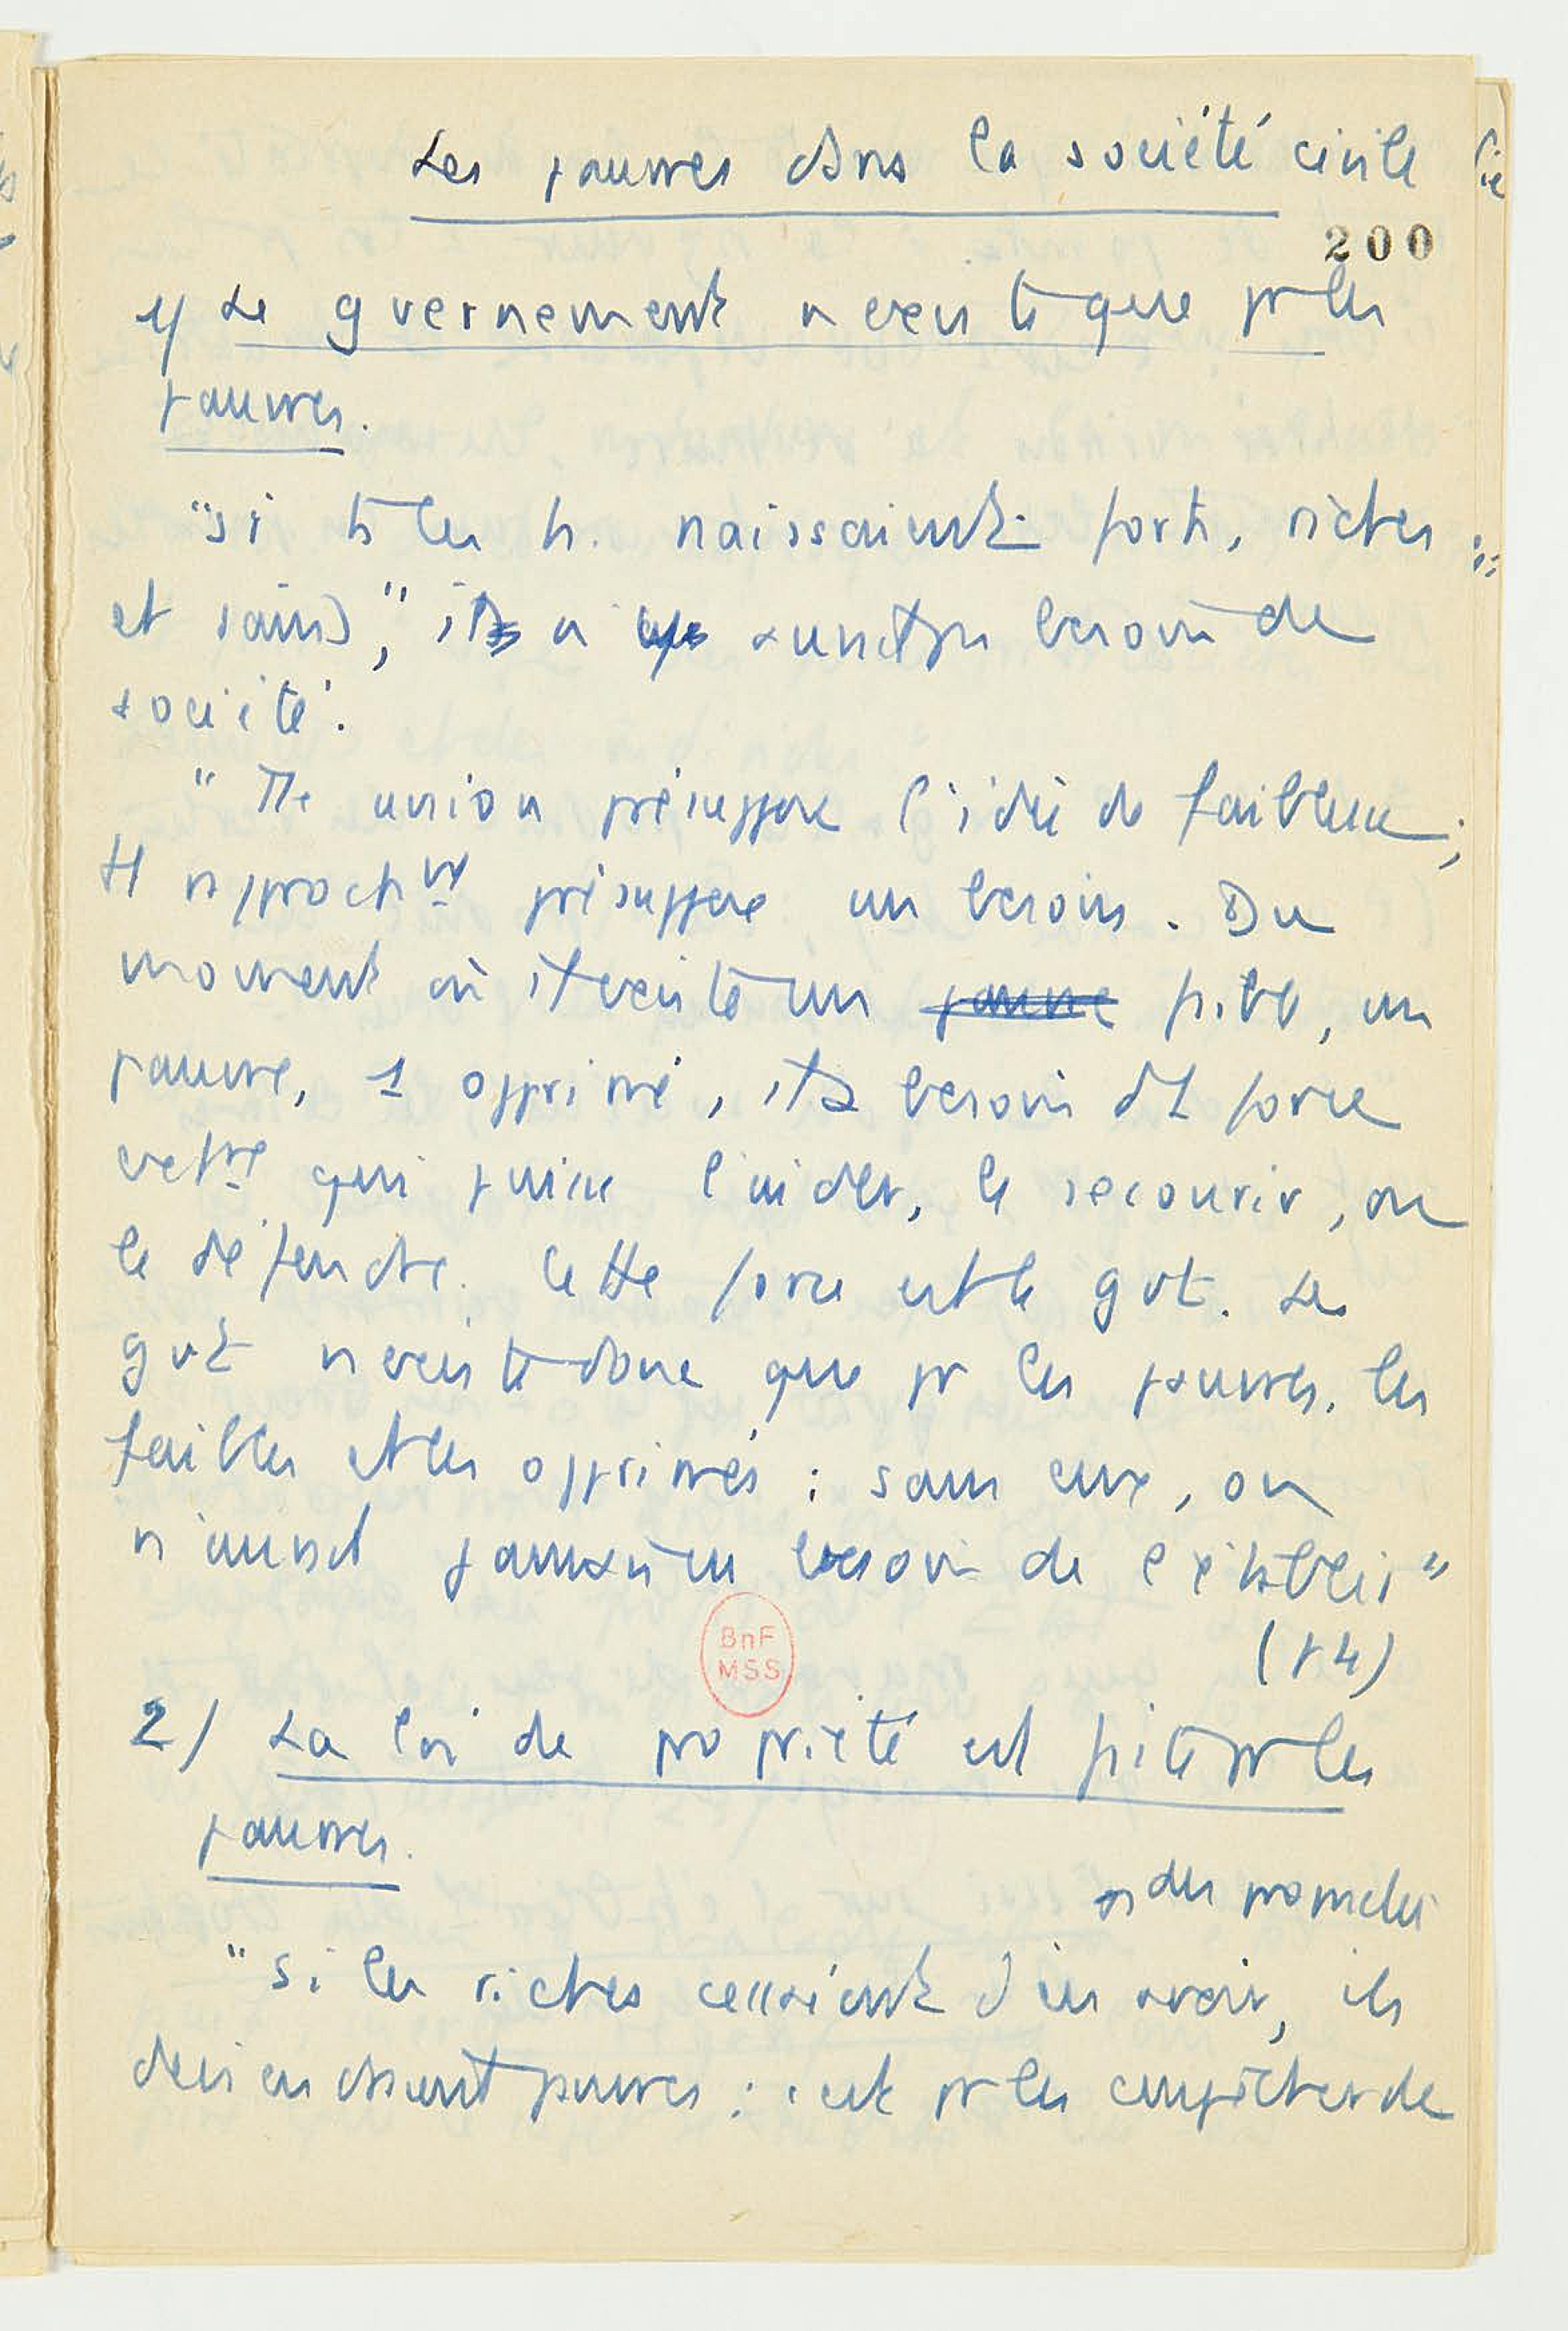 Les pauvres dans la société civile
200
1/ Le gvernement n'existe que pr les
pauvres.
"si ts les h. naissaient forts, riches
et sains," ils n'
auraient pas besoin de
société.
"Tte union présuppose l'idée de faiblesse ;
tt rapprocht présuppose un besoin. Du
moment où il existe un pauvre faible, un
pauvre, 1 opprimé, il a besoin d'1 force
extre qui puisse l'aider, le secourir, ou
le défendre. Cette force est le gvt. Le
gvt n'existe donc que pr les pauvres, les
faibles et les opprimés : sans eux, on
n'aurait jamais eu besoin de l'établir"
(p 4)
BnF
MSS
2/ La loi de propriété est faite pr les
pauvres.
des propriétés
"Si les riches cessaient d'en avoir, ils
deviendraient pauvres : c'est pr les empêcher de